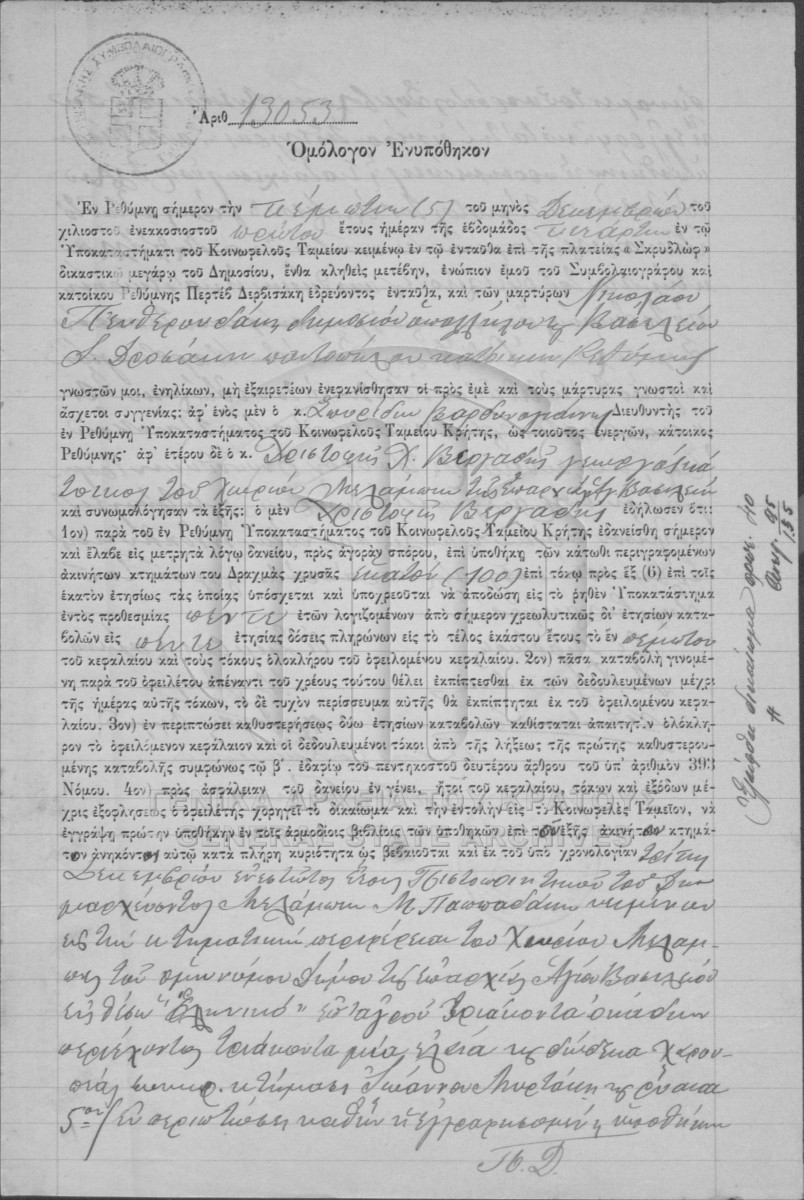 Ἀριθ. 13053
Ὁμόλογον Ἐνυπόθηκον
Ἐν Ρεθύμνῃ σήμερον τὴν πέμπτην (5) τοῦ μηνὸς Δεκεμβρίου τοῦ
χιλιοστοῦ ἐνεακοσιοστοῦ πρώτου ἔτους ἡμέραν τῆς ἑβδομάδος τετάρτην ἐν τῷ
Ὑποκαταστήματι τοῦ Κοινωφελοῦς Ταμείου κειμένῳ ἐν τῷ ἐνταῦθα ἐπὶ τῆς πλατείας «Σκρυδλὼφ»
δικαστικῷ μεγάρῳ τοῦ Δημοσίου, ἔνθα κληθεὶς μετέβην, ἐνώπιον ἐμοῦ τοῦ Συμβολαιογράφου καὶ
κατοίκου Ρεθύμνης Περτὲβ Δερβισάκη ἑδρεύοντος ἐνταῦθα, καὶ τῶν μαρτύρων Νικολάου
Πενθερουδάκη δημοσίου ὑπαλλήλου καὶ Βασιλείου
Δροσάκη παντοπώλου κατοίκων Ρεθύμνης
γνωστῶν μοι, ἐνηλίκων, μὴ ἐξαιρετέων ἐνεφανίσθησαν οἱ πρὸς ἐμὲ καὶ τοὺς μάρτυρας γνωστοὶ καὶ
ἄσχετοι συγγενίας: ἀφ' ἑνὸς μὲν ὁ κ. Σπυρίδων Βαρδινογιάννης Διευθυντὴς τοῦ
ἐν Ρεθύμνῃ Ὑποκαταστήματος τοῦ Κοινωφελοῦς Ταμείου Κρήτης, ὡς τοιοῦτος ἐνεργῶν, κάτοικος
Ρεθύμνης· ἀφ' ἑτέρου δὲ ὁ κ. Χριστοφῆς Χ. Βεργαδῆς γεωργὸς κά
τοικος τοῦ χωρίου Μελάμπων τῆς Ἐπαρχίας Ἁγ. Βασιλείου
καὶ συνωμολόγησαν τὰ ἑξῆς: ὁ μὲν Χριστοφῆς Βεργαδῆς ἐδήλωσεν ὅτι:
1ον) παρὰ τοῦ ἐν Ρεθύμνῃ Ὑποκαταστήματος τοῦ Κοινωφελοῦς Ταμείου Κρήτης ἐδανείσθη σήμερον
καὶ ἔλαβε εἰς μετρητὰ λόγῳ δανείου, πρὸς ἀγορὰν σπόρου, ἐπὶ ὑποθήκῃ τῶν κάτωθι περιγραφομένων
ἀκινήτων κτημάτων του Δραχμὰς χρυσᾶς ἑκατὸν (100) ἐπὶ τόκῳ πρὸς ἓξ (6) ἐπὶ τοῖς
ἑκατὸν ἐτησίως τὰς ὁποίας ὑπόσχεται καὶ ὑποχρεοῦται νὰ ἀποδώσῃ εἰς τὸ ῥηθὲν Ὑποκατάστημα
ἐντὸς προθεσμίας πέντε ἐτῶν λογιζομένων ἀπὸ σήμερον χρεωλυτικῶς δι' ἐτησίων κατα-
βολῶν εἰς πέντε ἐτησίας δόσεις πληρώνων εἰς τὸ τέλος ἑκάστου ἔτους τὸ ἓν πέμπτον
τοῦ κεφαλαίου καὶ τοὺς τόκους ὁλοκλήρου τοῦ ὀφειλομένου κεφαλαίου. 2ον) πᾶσα καταβολὴ γινομέ-
νη παρὰ τοῦ ὀφειλέτου ἀπέναντι τοῦ χρέους τούτου θέλει ἐκπίπτεσθαι ἐκ τῶν δεδουλευμένων μέχρι
τῆς ἡμέρας αὐτῆς τόκων, τὸ δὲ τυχὸν περίσσευμα αὐτῆς θὰ ἐκπίπτηται ἐκ τοῦ ὀφειλομένου κεφα-
λαίου. 3ον) ἐν περιπτώσει καθυστερήσεως δύω ἐτησίων καταβολῶν καθίσταται ἀπαιτητὸν ὁλόκλη-
ρον τὸ ὀφειλόμενον κεφάλαιον καὶ οἱ δεδουλευμένοι τόκοι ἀπὸ τῆς λήξεως τῆς πρώτης καθυστερου-
μένης καταβολῆς συμφώνως τῷ β'. ἐδαφίῳ τοῦ πεντηκοστοῦ δευτέρου ἄρθρου τοῦ ὑπ' ἀριθμὸν 393
Νόμου. 4ον) πρὸς ἀσφάλειαν τοῦ δανείου ἐν γένει, ἤτοι τοῦ κεφαλαίου, τόκων καὶ ἐξόδων μέ-
χρις ἐξοφλήσεως ὁ ὀφειλέτης χορηγεῖ τὸ δικαίωμα καὶ τὴν ἐντολὴν εἰς τὸ Κοινωφελὲς Ταμεῖον, νὰ
ἐγγράψῃ πρώτην ὑποθήκην ἐν τοῖς ἁρμοδίοις βιβλίοις τῶν ὑποθηκῶν ἐπὶ τοῦ ἑξῆς ἀκινήτου κτημά-
τος ἀνήκοντος αὐτῷ κατὰ πλήρη κυριότητα ὡς βεβαιοῦται καὶ ἐκ τοῦ ὑπὸ χρονολογίαν τρίτην
Δεκεμβρίου ἐνεστῶτος ἔτους Πιστοποιητικοῦ τοῦ Δη
μαρχεύοντος Μελάμπων Μ. Παππαδάκη κειμένου
εἰς τὴν κτηματικὴν περιφέρειαν τοῦ χωρίου Μελάμ-
πων τοῦ ὁμωνύμου Δήμου τῆς ἐπαρχίας Ἁγίου Βασιλείου
εἰς θέσιν "Ἑληνικὸ" ἀγροῦ τριάκοντα ὀκάδων
περιέχοντος τριάκοντα μίαν ἐλαίας καὶ δώδεκα χαρου-
πιὰς κτήμασι Ἰωάννου Μυρτάκη καὶ ῥύακα
5ον) Ἐν περιπτώσει καθ' ἣν ἡ ἐγγραφησομένη ὑποθήκη
Π. Δ.
ΓΕΝΙΚΑ ΑΡΧΕΙΑ ΤΟΥ ΚΡΑΤΟΥΣ
GENERAL STATE ARCHIVES